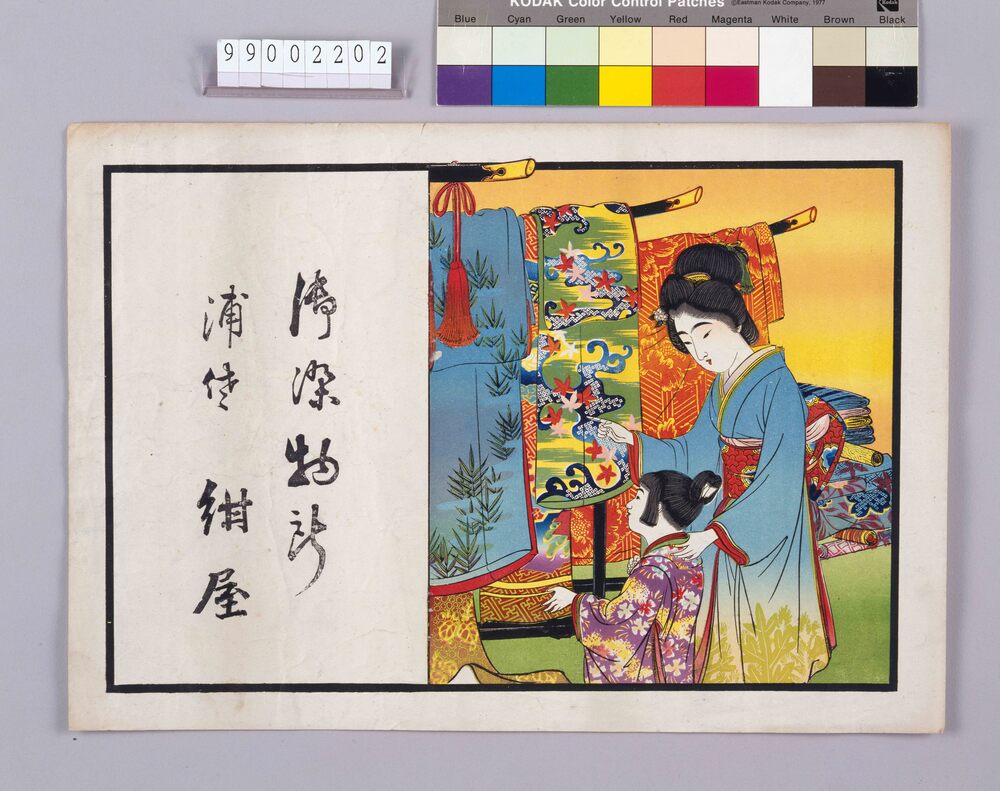 KODAK Color Control Patches ©Eastman Kodak Company, 1977
Kodak
Blue Cyan Green Yellow Red Magenta White Brown Black
99002202
御染物所
浦佐 紺屋